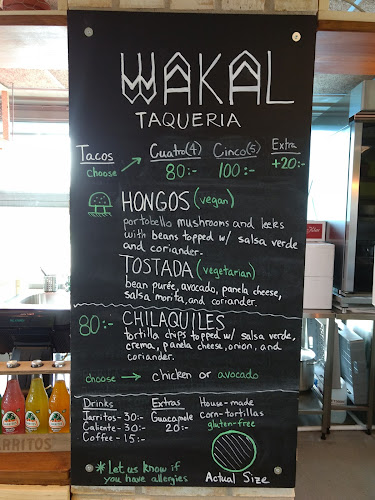 WAKAL
TAQUERIA
Tacos Cuatro(4) Cinco(5) Extra
choose → 80:- 100:- +20:-
HONGOS (vegan)
portobello mushrooms and leeks
with beans topped w/ salsa verde
and coriander.
TOSTADA (vegetarian)
bean purée, avocado, panela cheese,
salsa morita, and coriander.
80:- CHILAQUILES
tortilla chips topped w/ salsa verde,
crema, panela cheese, onion, and
coriander.
choose → chicken or avocado
Drinks Extras House-made
Jarritos - 30:- Guacamole corn-tortillas
Caliente - 30:- 20:- gluten-free
Coffee - 15:-
* let us know if
you have allergies
Actual Size
JARRITOS